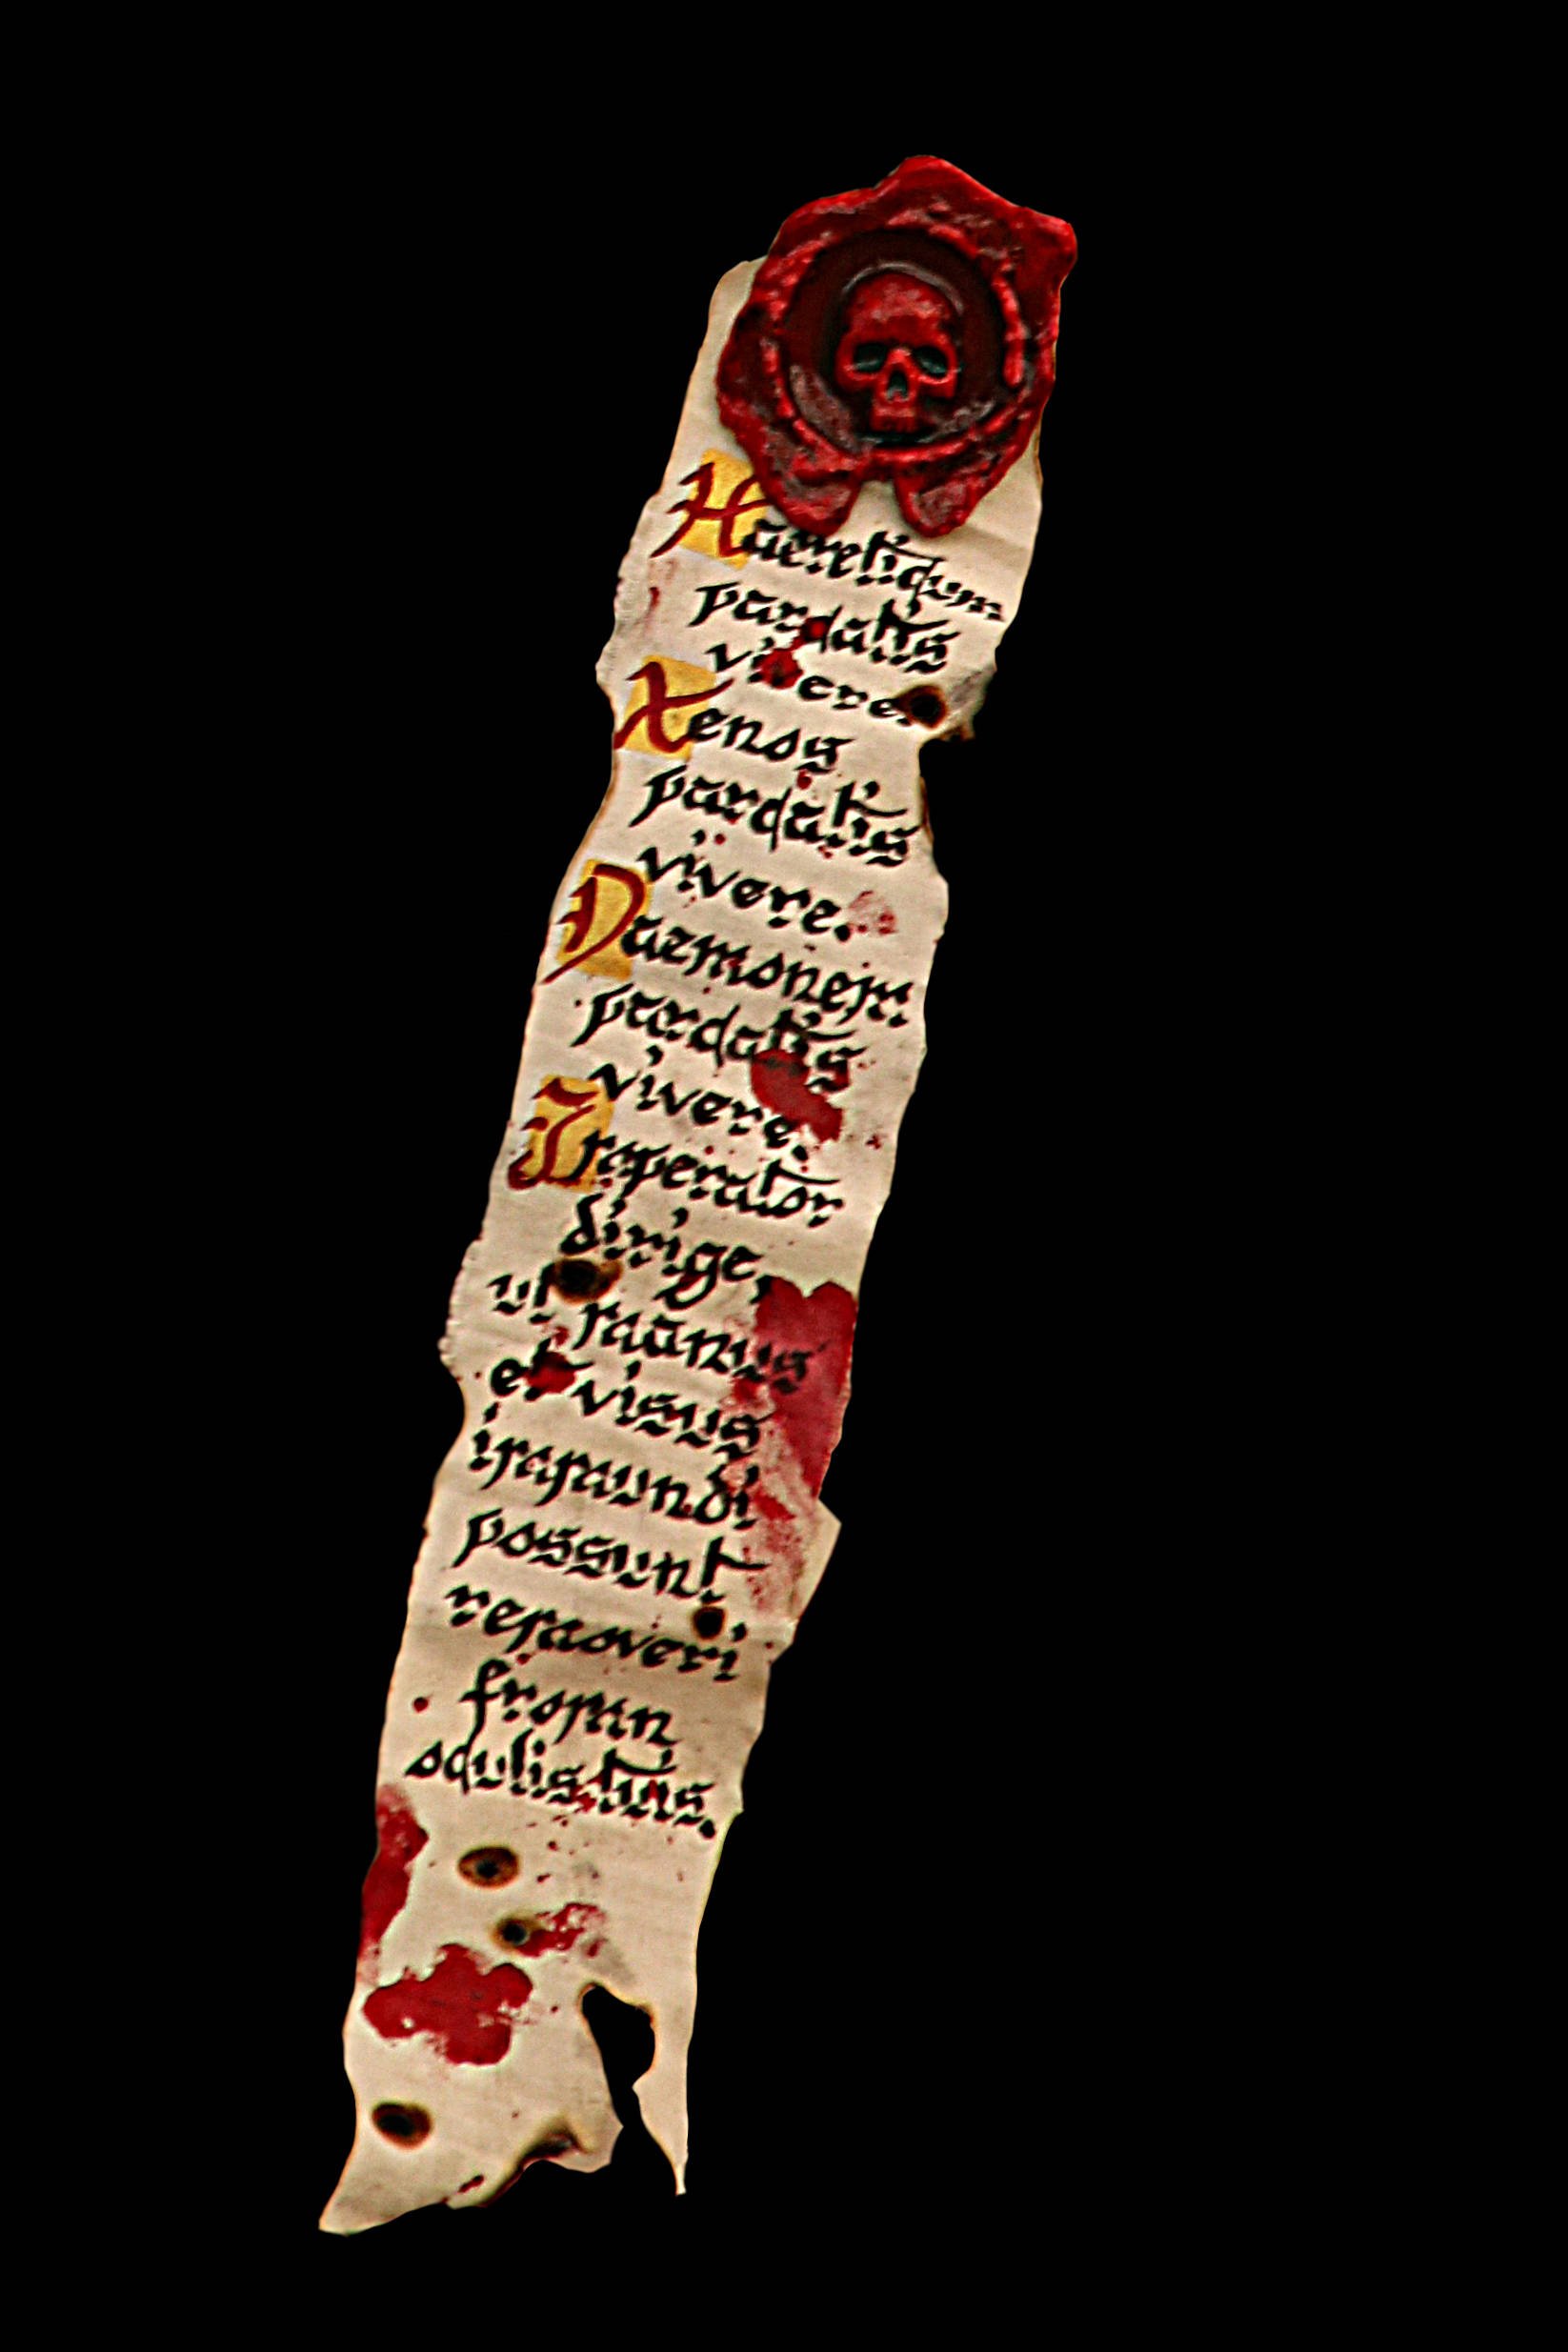 Haereticum
parcatis
vivere.
Xenos
parcatis
vivere.
Daemonem
parcatis
vivere.
Imperator
dirige,
ut manus
et visus
immundi
possunt
removeri
from
oculistuis.